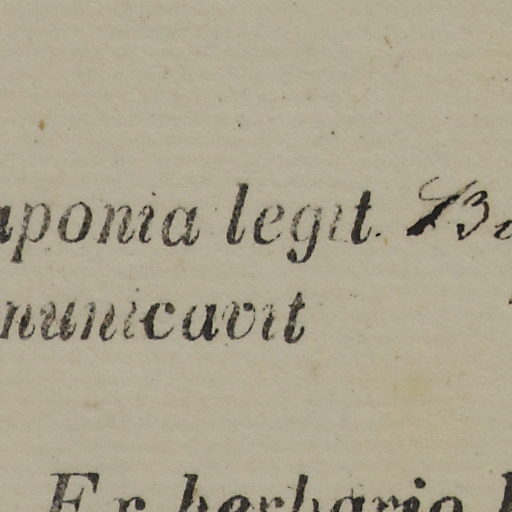 aponia legit.
municavit
Ex herbario